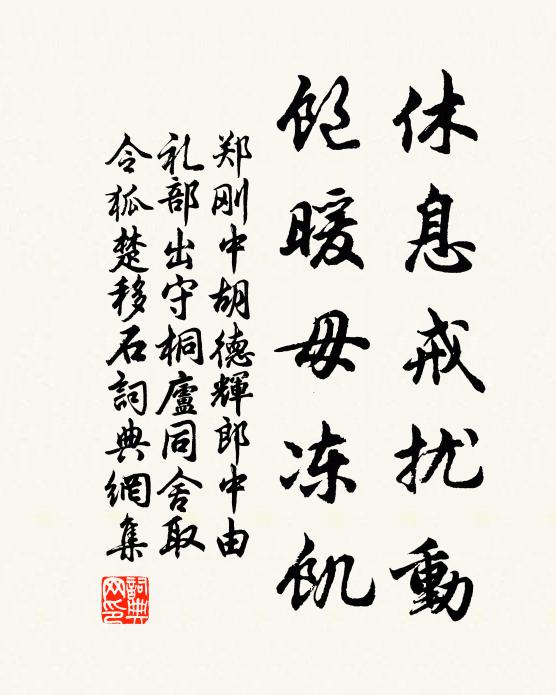 休息戒扰動
饱暖毋冻饥
郑刚中胡德輝郎中由
礼部出守桐廬同舍取
令狐楚移石詞典網集
詞典
网